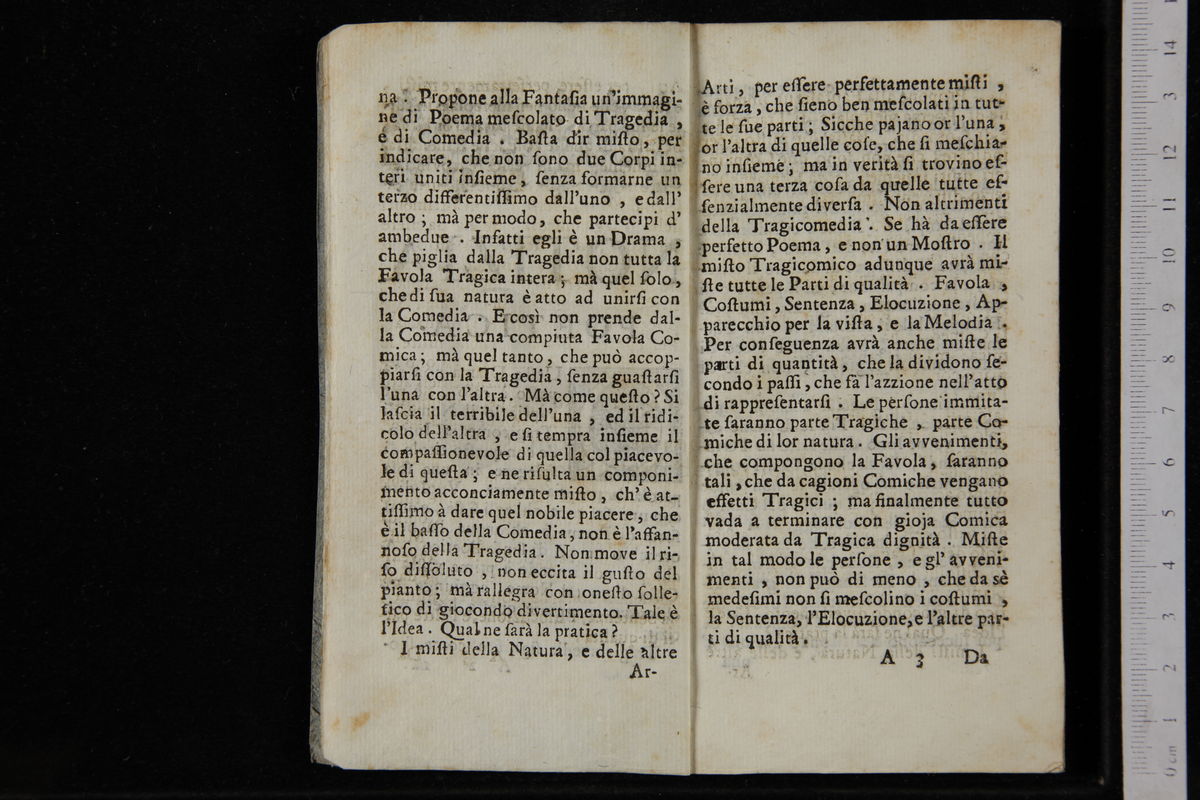 na . Propone alla Fantaſia un'immagi-
ne di Poema meſcolato di Tragedia ,
e di Comedia . Baſta dir miſto, per
indicare, che non ſono due Corpi in-
teri uniti inſieme, ſenza formarne un
terzo differentiſſimo dall'uno , e dall'
altro ; mà per modo, che partecipi d'
ambedue . Infatti egli è un Drama ,
che piglia dalla Tragedia non tutta la
Favola Tragica intera ; mà quel ſolo,
che di ſua natura è atto ad unirſi con
la Comedia . E così non prende dal-
la Comedia una compiuta Favola Co-
mica; mà quel tanto, che può accop-
piarſi con la Tragedia, ſenza guaſtarſi
l'una con l'altra . Mà come queſto ? Si
laſcia il terribile dell'una , ed il ridi-
colo dell'altra , e ſi tempra inſieme il
compaſſionevole di quella col piacevo-
le di queſta ; e ne riſulta un componi-
mento acconciamente miſto, ch'è at-
tiſſimo à dare quel nobile piacere, che
è il baſſo della Comedia, non è l'affan-
noſo della Tragedia . Non move il ri-
ſo diſſoluto , non eccita il guſto del
pianto; mà rallegra con oneſto ſolle-
tico di giocondo divertimento. Tale è
l'Idea . Qual ne ſarà la pratica ?
I miſti della Natura, e delle altre
Ar-
Arti, per eſſere perfettamente miſti ,
è forza, che ſieno ben meſcolati in tut-
te le ſue parti ; Sicche pajano or l'una,
or l'altra di quelle coſe, che ſi meſchia-
no inſieme ; ma in verità ſi trovino eſ-
ſere una terza coſa da quelle tutte eſ-
ſenzialmente diverſa . Non altrimenti
della Tragicomedia . Se hà da eſſere
perfetto Poema, e non un Moſtro . Il
miſto Tragicomico adunque avrà mi-
ſte tutte le Parti di qualità . Favola ,
Coſtumi, Sentenza, Elocuzione, Ap-
parecchio per la viſta, e la Melodia .
Per conſeguenza avrà anche miſte le
parti di quantità, che la dividono ſe-
condo i paſſi, che fà l'azzione nell'atto
di rappreſentarſi . Le perſone immita-
te ſaranno parte Tragiche , parte Co-
miche di lor natura . Gli avvenimenti,
che compongono la Favola, ſaranno
tali, che da cagioni Comiche vengano
effetti Tragici ; ma finalmente tutto
vada a terminare con gioja Comica
moderata da Tragica dignità . Miſte
in tal modo le perſone , e gl' avveni-
menti , non può di meno , che da sè
medeſimi non ſi meſcolino i coſtumi ,
la Sentenza, l'Elocuzione, e l'altre par-
ti di qualità .
A 3 Da
0 cm 1 2 3 4 5 6 7 8 9 10 11 12 3 14